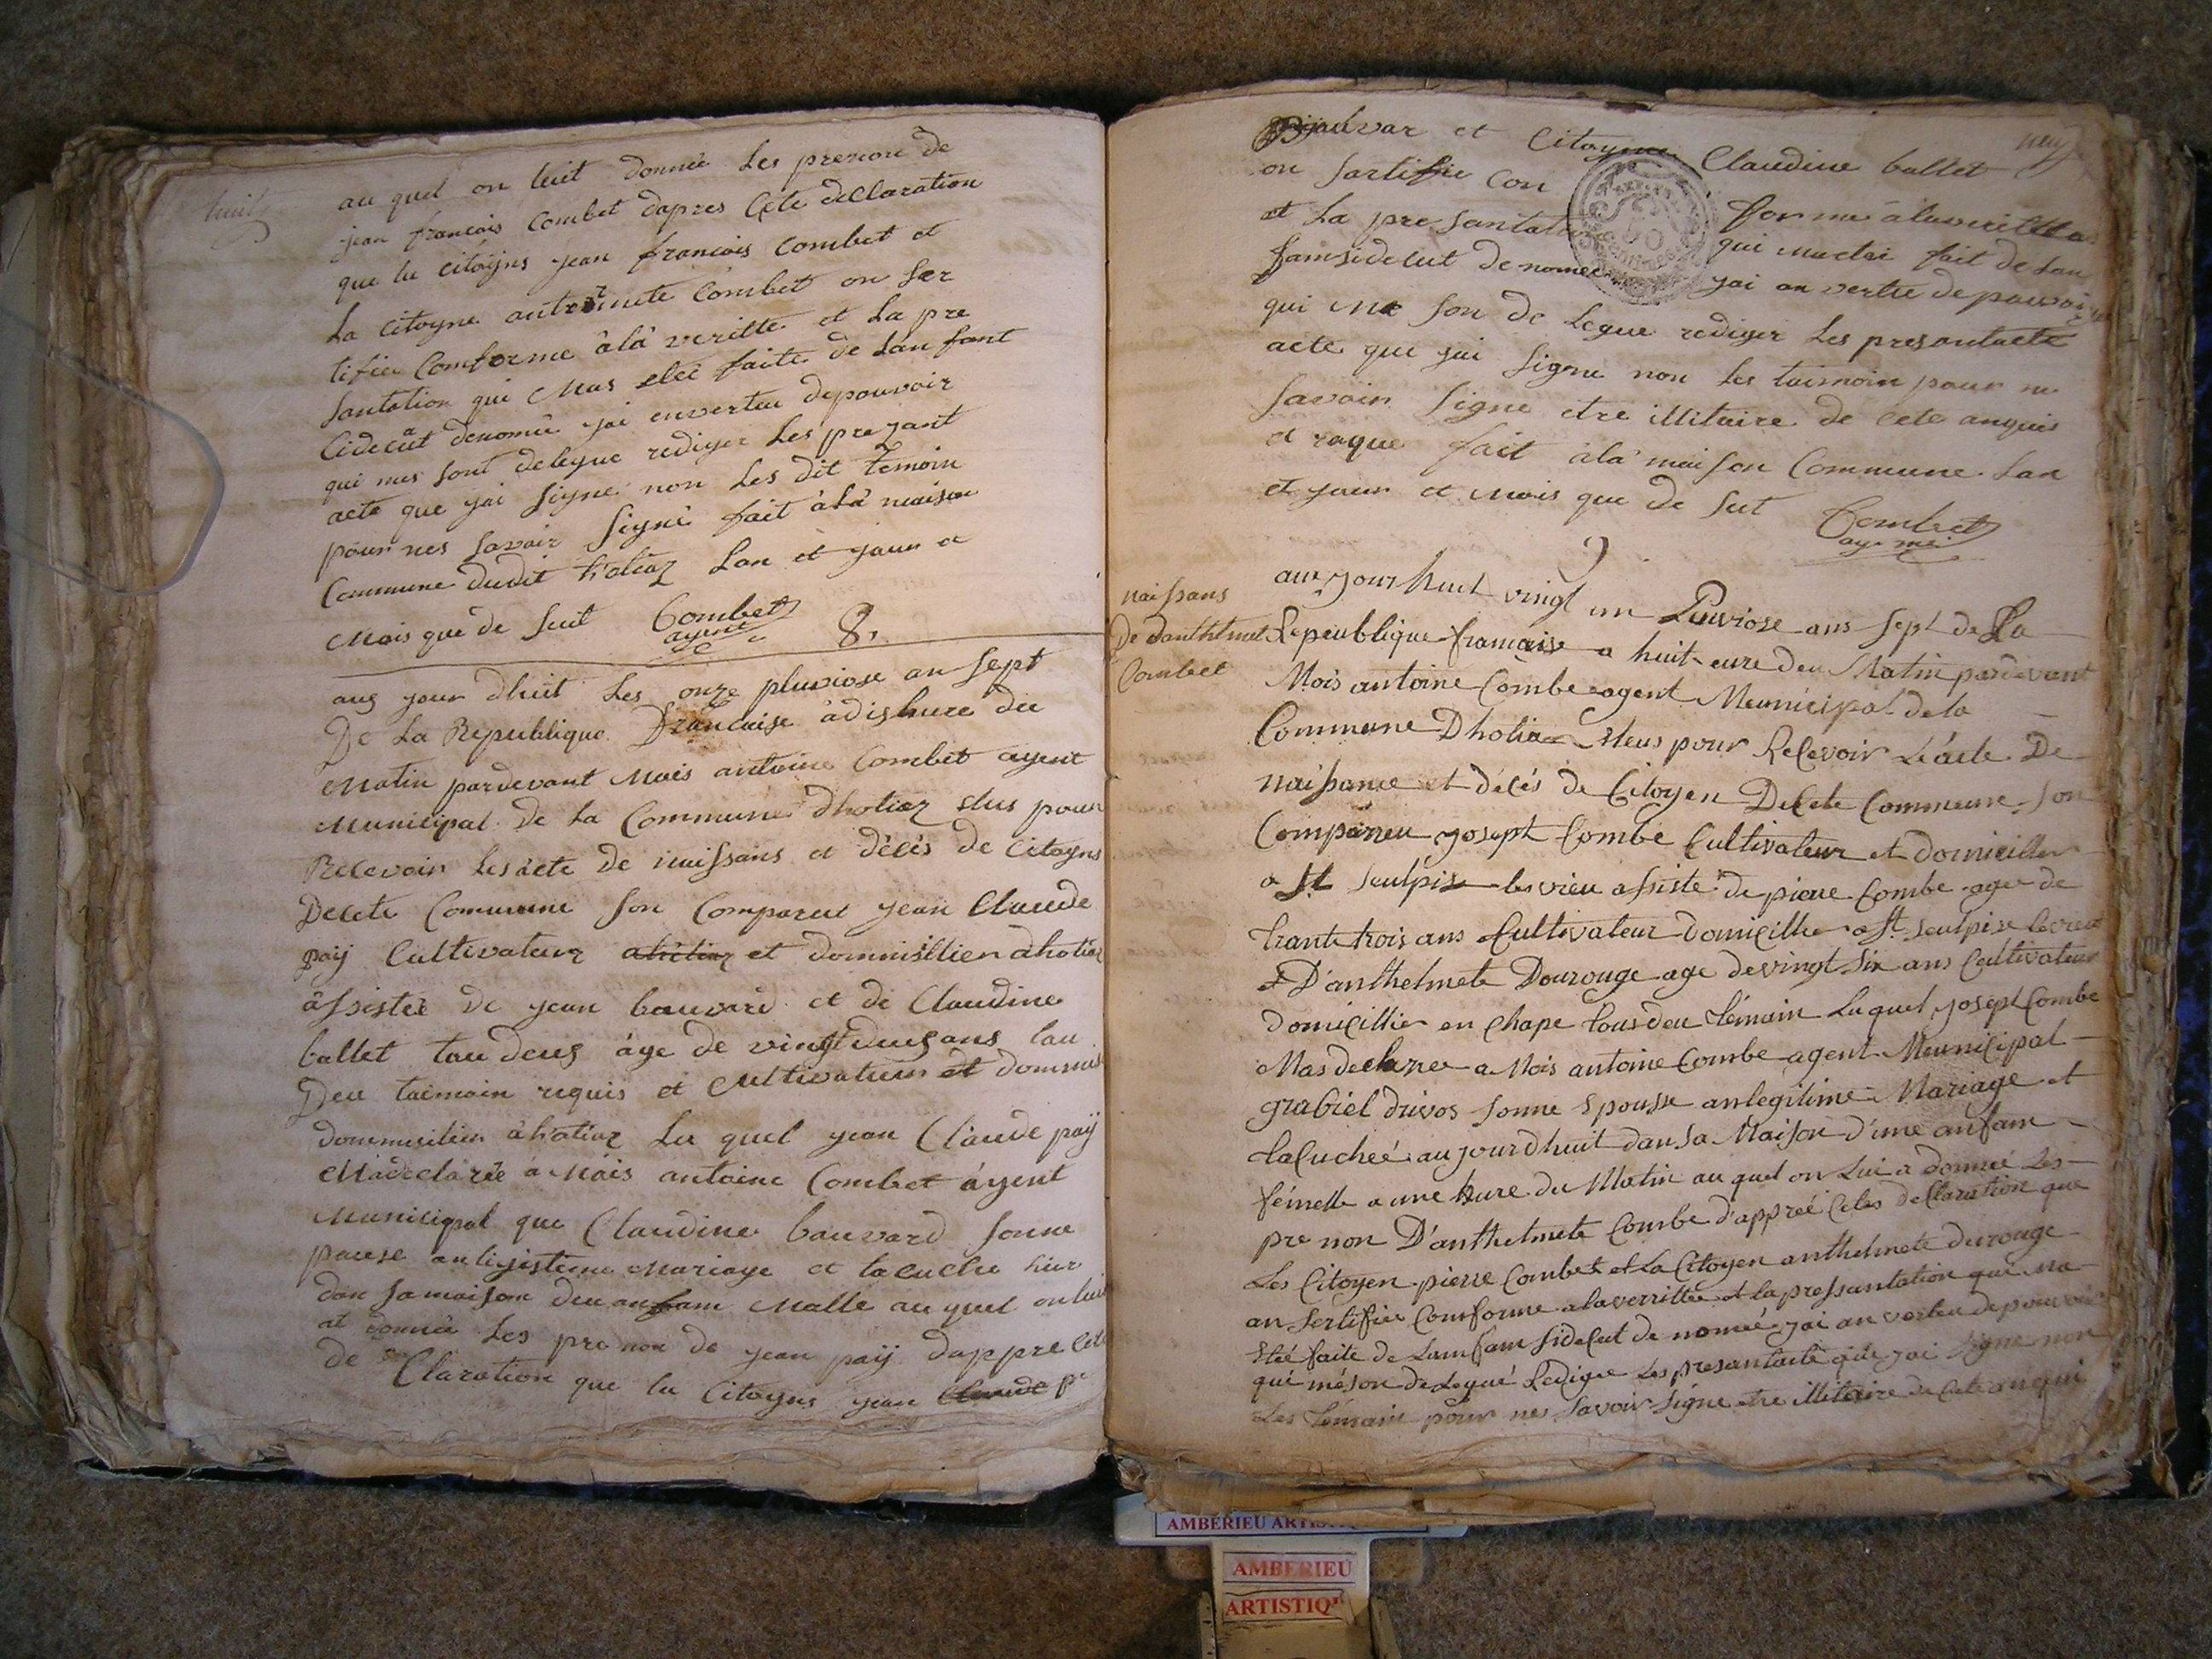 huit
au quel on luit donnée les prenon de
jean francois Combet dapres Cete declaration
que lu citöyns jean francois Combet et
La citoyne antoinete Combet on ser
tifiee Comforme àlà veritte et La pre
santation qui Mas etéé faite de Lan fant
Cidecut denomée jai enverteu depouvoir
qui mes sont delegue rediger Les prezant
acte que jai signe non Les dit temoin
pour nes savoir signé fait àlà maison
Commune dudit h'otiaz Lan et jour et
Mois que de suit Combet
agent
8.
auq jour dhuit Les onze pluviose an sept
De La Republique Francaise àdishure du
Matin pardevant Mois antoine Combet agent
Municipal De La Commune dhotiaz elus pour
Recevoir Les acte de naissans et décés de Citoyns
Decete Commune son Comparut jean Claude
paÿ Cultivateur ahotiaz et dommisillier ahotiaz
assistéé de jean bauvard et de Claudine
ballet tau deus áge de vingt deus ans tau
Deu taimoin requis et Cultivateur et dommis
dommisilier àhotiaz Lu quel jean Claude paÿ
Madeclarée à Mois antoine Combet ágent
Municipal que Claudine bauvard sonne
pause anligisteme Mariage et lacuche hier
dan samaison deu anfam Malle au quel on luit
at donnée Les prenon de jean paÿ dappre Cete
de Claration que lu Citoyns jean Claude p
neuf
Bauvar et Citoyene Claudine ballet
on sartifie Con forme àlaveritte
et La presantation qui Mactéi fait de Lan
famsidecut denomée jai an vertu de pouvoir
qui Me son de Legue rediger Les presantacte
acte que jai signe non les taimoin pour ne
savoir signe etre illitaire de cete anquis
et raque fait àlà maison Commune Lan
et jour et Mois que de sut Combet
agent
9
naissans
De Danthelmet
Combet
aux jour huit vingt un Pluviose ans sept de La
Republique francaise a huit eure deu Matin pardevant
Mois antoine Combe agent Meunicipal de la
Commune Dhotiaz Eleus pour Recevoir L'acte De
naissance et décés de Citoyen Decete Commeune son
Compáreu josept Combe Cultivateur et domicillier
a St Seulpise les vieu assisté de piere Combe age de
trante trois ans Cultivateur domicillier a St Seulpise levieu
et D'anthelmete Dourouge age devingt six ans Cultivateur
domicillier en Chape tous deu témain Luquel josept Combe
Mas declaree a Mois antoine Combe agent Meunicipal
grabiel drivos sonne Epousse anlegitime Mariage et
lacucheé aujourdhuit dan sa Maison d'une anfam
fémelle a une hure du Matin au quel on lui a donnée Les
pre non D'anthelmete Combe d'appreé Cetes deClaration que
Les Citoyen pierre Combet et La Citoyen anthelmete durouge
an sertifiee Comforme alaverrittee et la pressantation qui ma
Etéé faite de Lamfam sidecut de nomeé jai an verteu de pouvoir
qui méson de Legué Redigee Les presantacte que jai signe non
Les témain pour nes savoir signe etre illitaire de Cete anqui
AMBERIEU
AMBERIEU
ARTISTIQ